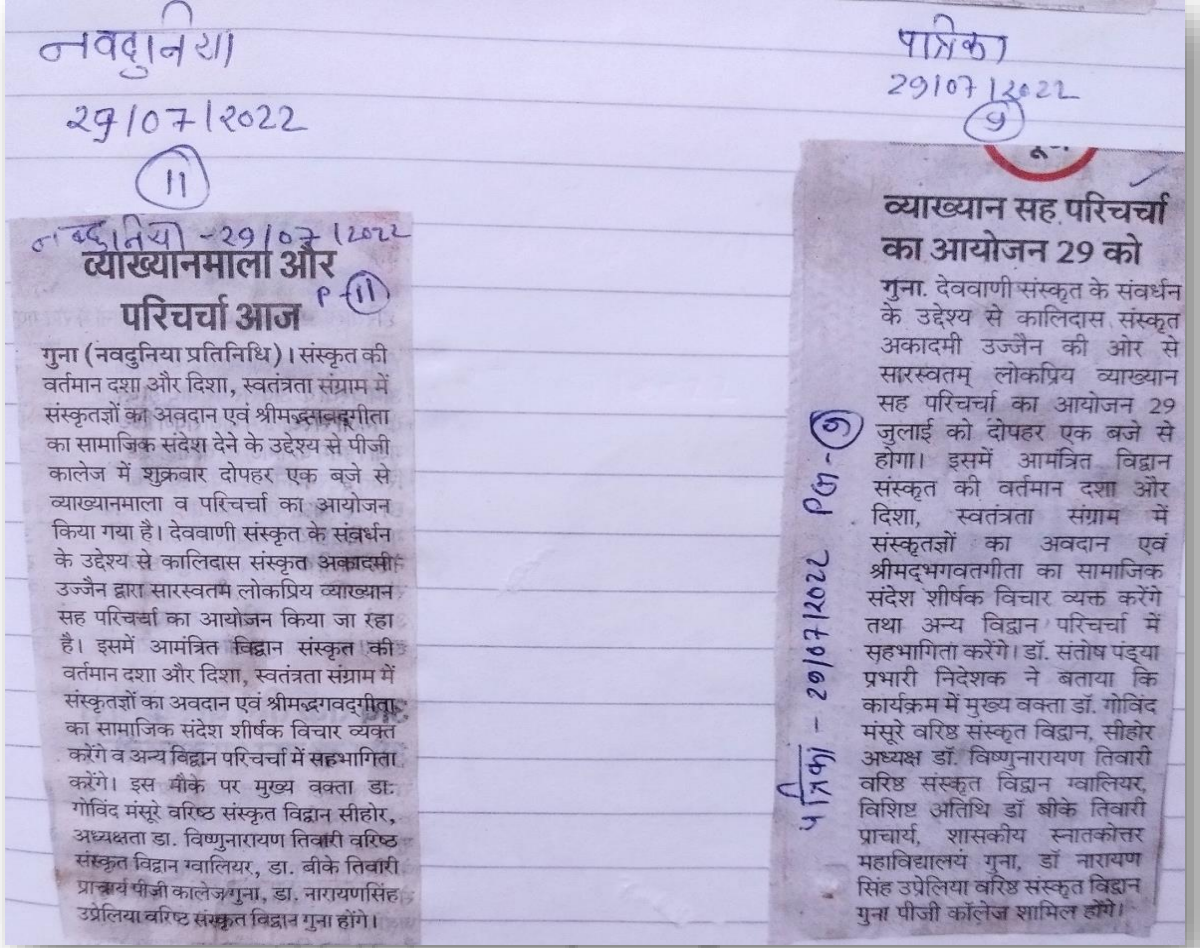 नवदुनिया
29/07/2022
11
नवदुनिया - 29/07/2022
व्याख्यानमाला और
P-11
परिचर्चा आज
गुना (नवदुनिया प्रतिनिधि)। संस्कृत की
वर्तमान दशा और दिशा, स्वतंत्रता संग्राम में
संस्कृतज्ञों का अवदान एवं श्रीमद्धगवद्गीता
का सामाजिक संदेश देने के उद्देश्य से पीजी
कालेज में शुक्रवार दोपहर एक बजे से
व्याख्यानमाला व परिचर्चा का आयोजन
किया गया है। देववाणी संस्कृत के संवर्धन
के उद्देश्य से कालिदास संस्कृत अकादमी
उज्जैन द्वारा सारस्वतम लोकप्रिय व्याख्यान
सह परिचर्चा का आयोजन किया जा रहा
है। इसमें आमंत्रित विद्वान संस्कृत की
वर्तमान दशा और दिशा, स्वतंत्रता संग्राम में
संस्कृतज्ञों का अवदान एवं श्रीमद्धगवद्गीता
का सामाजिक संदेश शीर्षक विचार व्यक्त
करेंगे व अन्य विद्वान परिचर्चा में सहभागिता
करेंगे। इस मौके पर मुख्य वक्ता डा.
गोविंद मंसूरे वरिष्ठ संस्कृत विद्वान सीहोर,
अध्यक्षता डा. विष्णुनारायण तिवारी वरिष्ठ
संस्कृत विद्वान ग्वालियर, डा. बीके तिवारी
प्राचार्य पीजी कालेज गुना, डा. नारायणसिंह
उप्रेलिया वरिष्ठ संस्कृत विद्वान गुना होंगे।
पत्रिका
29/07/2022
9
व्याख्यान सह परिचर्चा
का आयोजन 29 को
गुना. देववाणी संस्कृत के संवर्धन
के उद्देश्य से कालिदास संस्कृत
अकादमी उज्जैन की ओर से
सारस्वतम् लोकप्रिय व्याख्यान
सह परिचर्चा का आयोजन 29
जुलाई को दोपहर एक बजे से
होगा। इसमें आमंत्रित विद्वान
संस्कृत की वर्तमान दशा और
दिशा, स्वतंत्रता संग्राम में
संस्कृतज्ञों का अवदान एवं
श्रीमद्भगवतगीता का सामाजिक
संदेश शीर्षक विचार व्यक्त करेंगे
तथा अन्य विद्वान परिचर्चा में
सहभागिता करेंगे। डॉ. संतोष पंड्या
प्रभारी निदेशक ने बताया कि
कार्यक्रम में मुख्य वक्ता डॉ. गोविंद
मंसूरे वरिष्ठ संस्कृत विद्वान, सीहोर
अध्यक्ष डॉ. विष्णुनारायण तिवारी
वरिष्ठ संस्कृत विद्वान ग्वालियर,
विशिष्ट अतिथि डॉ बीके तिवारी
प्राचार्य, शासकीय स्नातकोत्तर
महाविद्यालय गुना, डॉ नारायण
सिंह उप्रेलिया वरिष्ठ संस्कृत विद्वान
गुना पीजी कॉलेज शामिल होंगे।
पत्रिका - 29/07/2022 PG-9